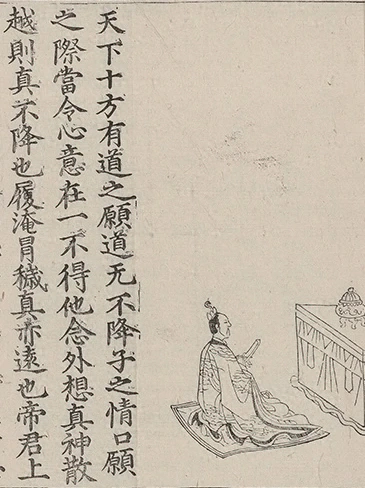 天下十方有道之願道无不降子之情口願
之際當令心意在一不得他念外想真神散
越則真不降也履淹冒穢真亦遠也帝君上